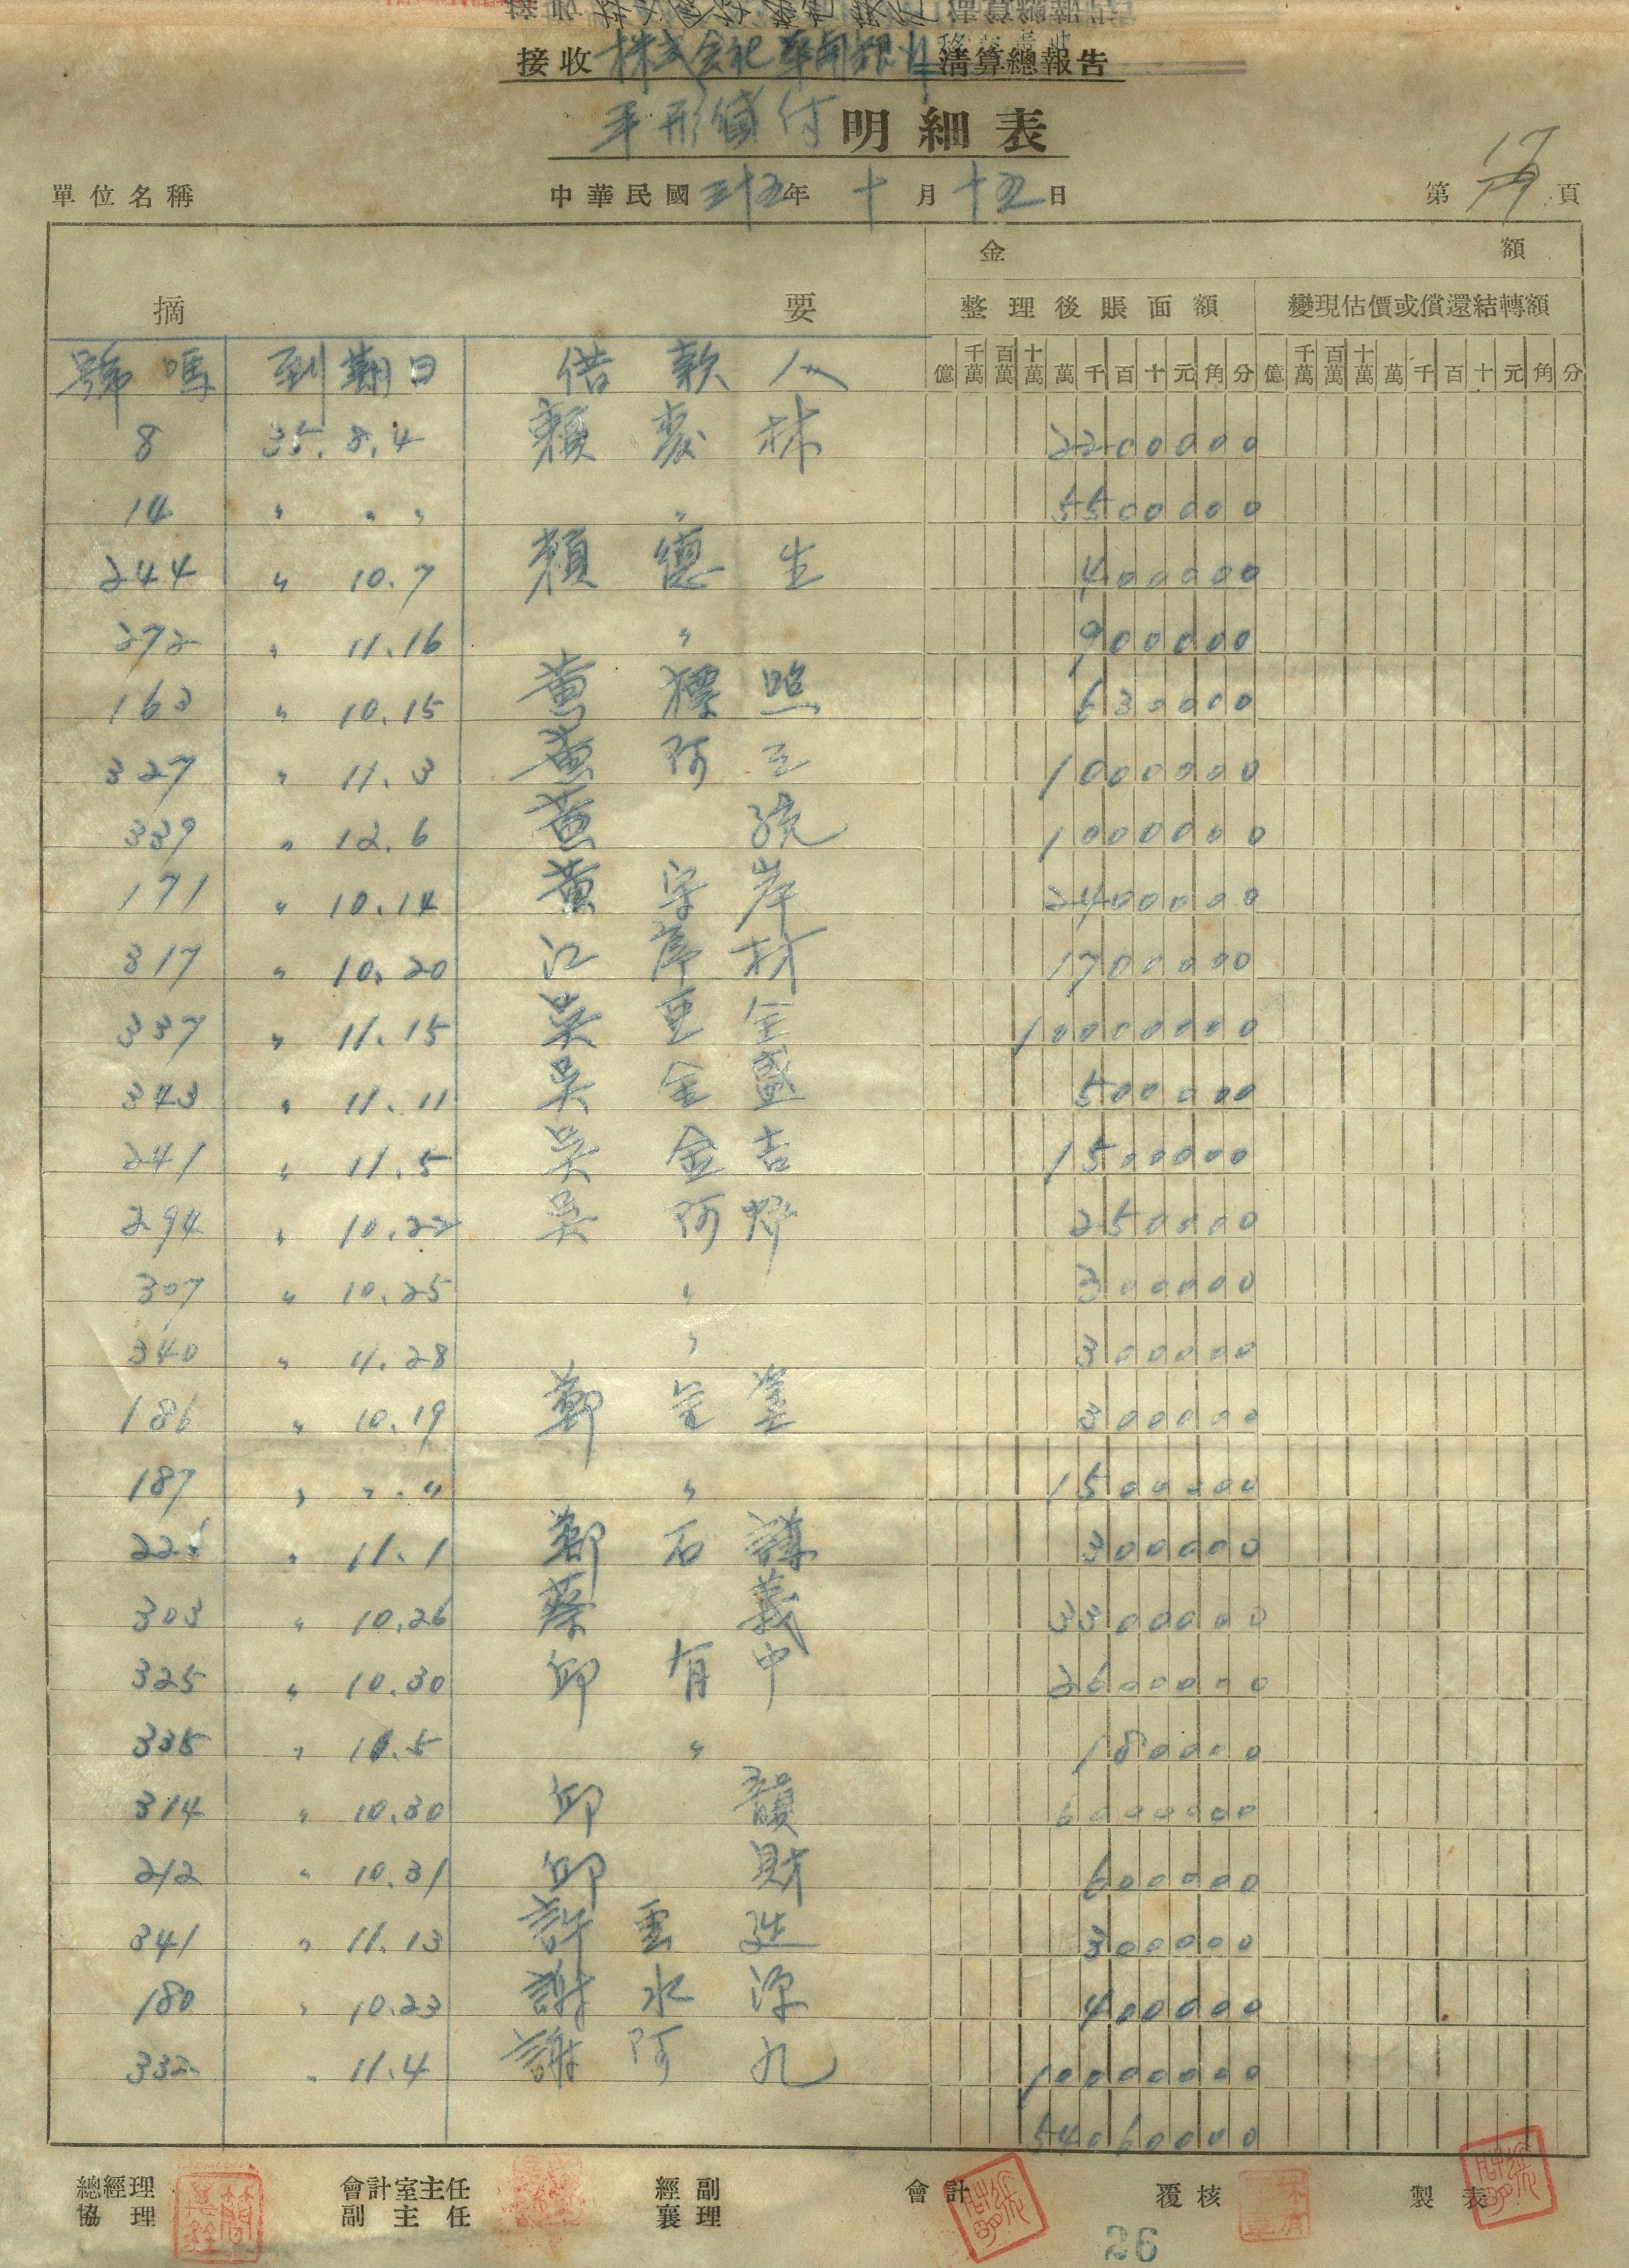 接收 株式会社華南銀行 清算總報告
手形貸付 明細表
單位名稱 中華民國 三十五年 十月 十五日 第 17 頁
金額
摘要 整理後賬面額 變現估價或償還結轉額
億 千萬 百萬 十萬 萬 千 百 十 元 角 分 億 千萬 百萬 十萬 萬 千 百 十 元 角 分
號碼 到期日 借款人
8 35.8.4 賴 林 2200000
14 〃 〃 〃 〃 5500000
244 〃 10.7 賴德生 400000
272 〃 11.16 〃 900000
163 〃 10.15 黄標照 630000
327 〃 11.3 黄阿 1000000
339 〃 12.6 黄 1000000
171 〃 10.14 黄 岸 2400000
317 〃 10.20 江 材 1700000
337 〃 11.15 吳 全 10000000
343 〃 11.11 吳金盛 500000
241 〃 11.5 吳金吉 1500000
294 〃 10.22 吳阿 250000
307 〃 10.25 〃 300000
340 〃 11.28 〃 300000
186 〃 10.19 鄭金 300000
187 〃 〃.〃 〃 1500000
226 〃 11.1 鄭石 300000
303 〃 10.26 蔡義 3300000
325 〃 10.30 邱有中 2600000
335 〃 11.5 〃 180000
314 〃 10.30 邱韻 6000000
212 〃 10.31 邱財 600000
341 〃 11.13 許雲 300000
180 〃 10.23 謝水源 400000
332 〃 11.4 謝阿九 10000000
54060000
總經理 會計室主任 經副 會計 覆核 製表
協理 副主任 襄理
26